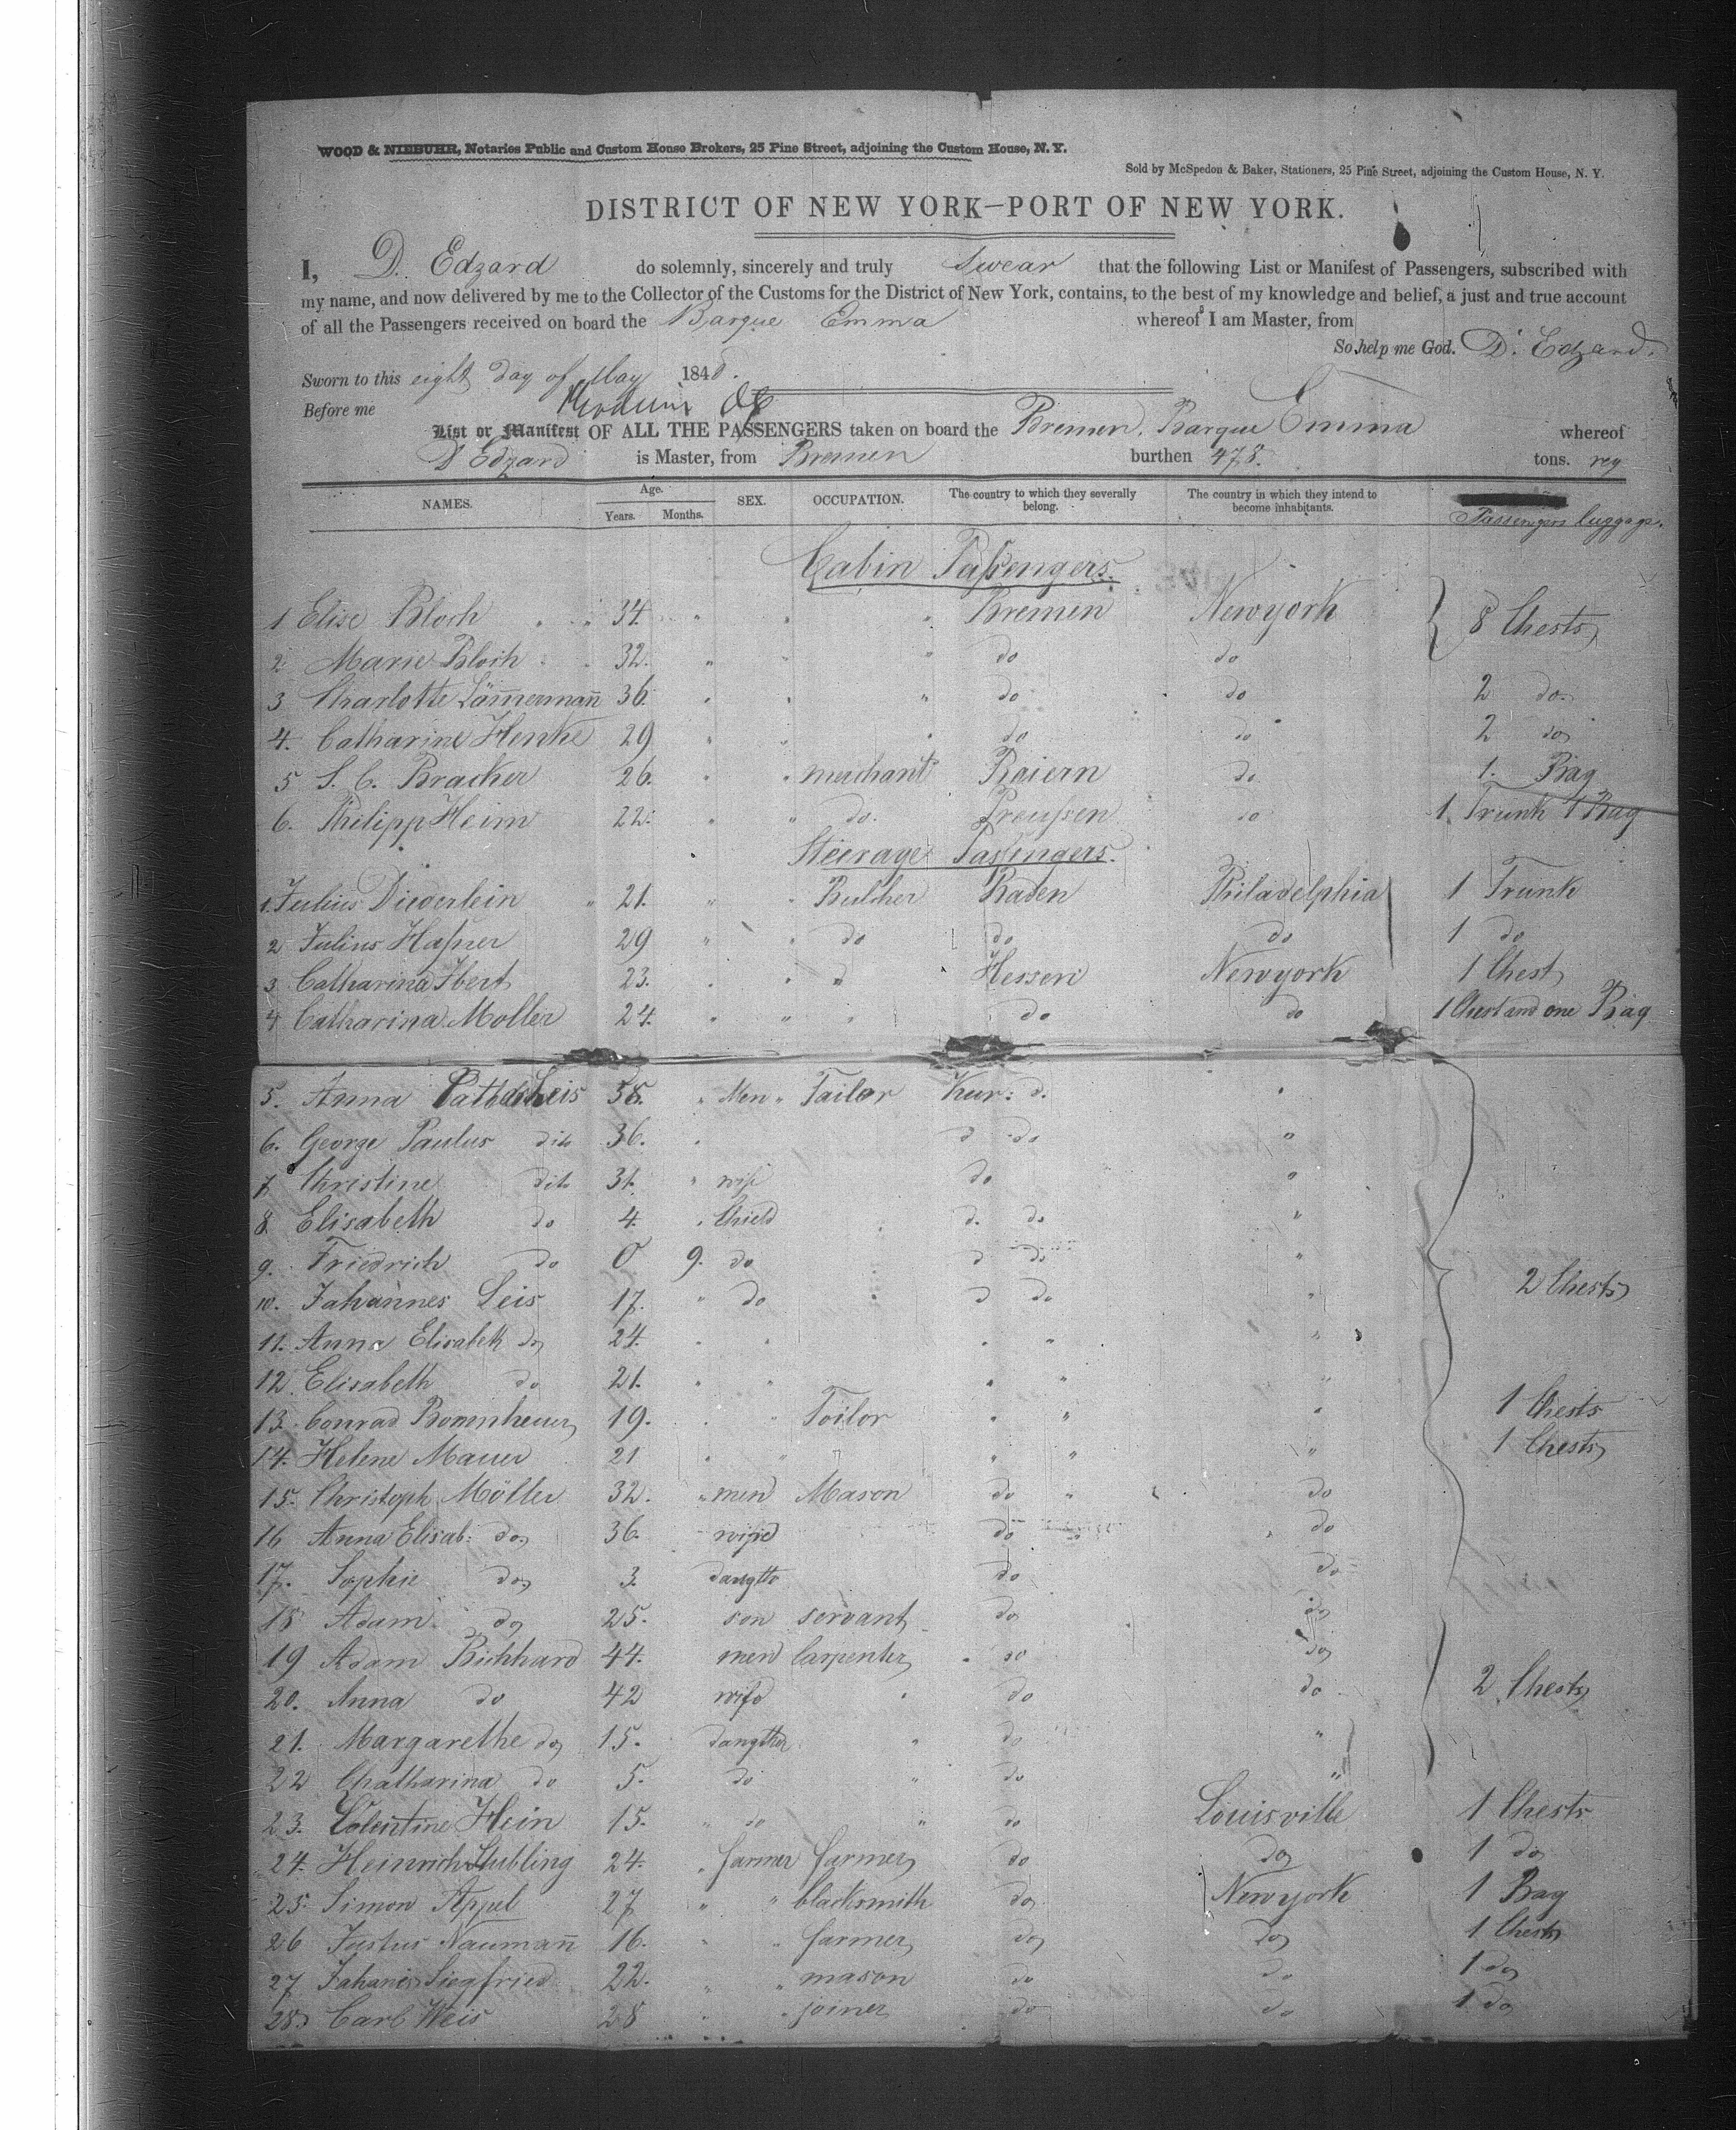 WOOD & NIEBUHR, Notaries Public and Custom House Brokers, 25 Pine Street, adjoining the Custom House, N. Y.
Sold by McSpedon & Baker, Stationers, 25 Pine Street, adjoining the Custom House, N. Y.
DISTRICT OF NEW YORK—PORT OF NEW YORK.
I, D. Edzard do solemnly, sincerely and truly Swear that the following List or Manifest of Passengers, subscribed with
my name, and now delivered by me to the Collector of the Customs for the District of New York, contains, to the best of my knowledge and belief, a just and true account
of all the Passengers received on board the Barque Emma whereof I am Master, from
So help me God. D. Edzard.
Sworn to this eight day of May 1848.
Before me
List or Manifest OF ALL THE PASSENGERS taken on board the Bremen. Barque Emma whereof
D Edzard is Master, from Bremen burthen 478. tons. reg
NAMES. Age. Years. Months. SEX. OCCUPATION. The country to which they severally belong. The country in which they intend to become inhabitants. Passengers luggage.
Cabin Passengers.
1 Elise Bloch " " 34. " " " Bremen Newyork 8 Chests
2 Marie Bloch 32. " " " do do
3 Charlotte Läm̅erman̅ 36. " " " do do 2 do.
4. Catharine Henke 29 " " " do do 2 do
5 S. C. Bracker 26. " " merchant Baiern do 1. Bag
6. Philipp Heim 22. " " do. Preussen do 1. Trunk 1 Bag
Steerage Passengers.
1. Julius Diederlein " 21. " " Butcher Baden Philadelphia 1 Trunk
2 Julius Hafner 29 " " do do do 1 do
3 Catharina Ibert 23. " " " Hessen Newyork 1 Chest
4 Catharina Moller 24. " " " do do 1 Chest and one Bag
5. Anna 58. " Men " Tailor Kur: d. "
6. George Paulus dito 36. " d do "
7 Christine dito 31. " wife do "
8. Elisabeth do 4. " Child d. do "
9. Friedrich do 0 9. do d do "
10. Johannes Leis 17. " do d do " 2 Chests
11. Anna Elisabeth do 24. " " " " "
12 Elisabeth do 21. " " " " "
13. Conrad Bommheuer 19. " " Toilor " " " 1 Chests
14. Helene Mauer 21 " " " " " 1 Chests
15. Christoph Möller 32. " men Mason do " do
16 Anna Elisab: do 36. wife do do
17. Sophie do 3. daugtto do do
18 Adam do 25. son servant do do
19 Adam Bichhard 44. men Carpenter " do do
20. Anna do 42 wife " do do 2 Chests
21. Margarethe do 15. daugther " do "
22 Chatharina do 5. do " do "
23. Valentine Hein 15. " do " do Louisville 1 Chests
24. Heinrich Stubling 24. " farmer farmer do do 1 do
25. Simon Appel 27 " " blacksmith do Newyork 1 Bag
26 Justus Nauman̅ 16. " " farmer do do 1 Chests
27 Johanes Siegfried 22. " " mason do do 1 do
28. Carl Weis 28 " " joiner do do 1 do